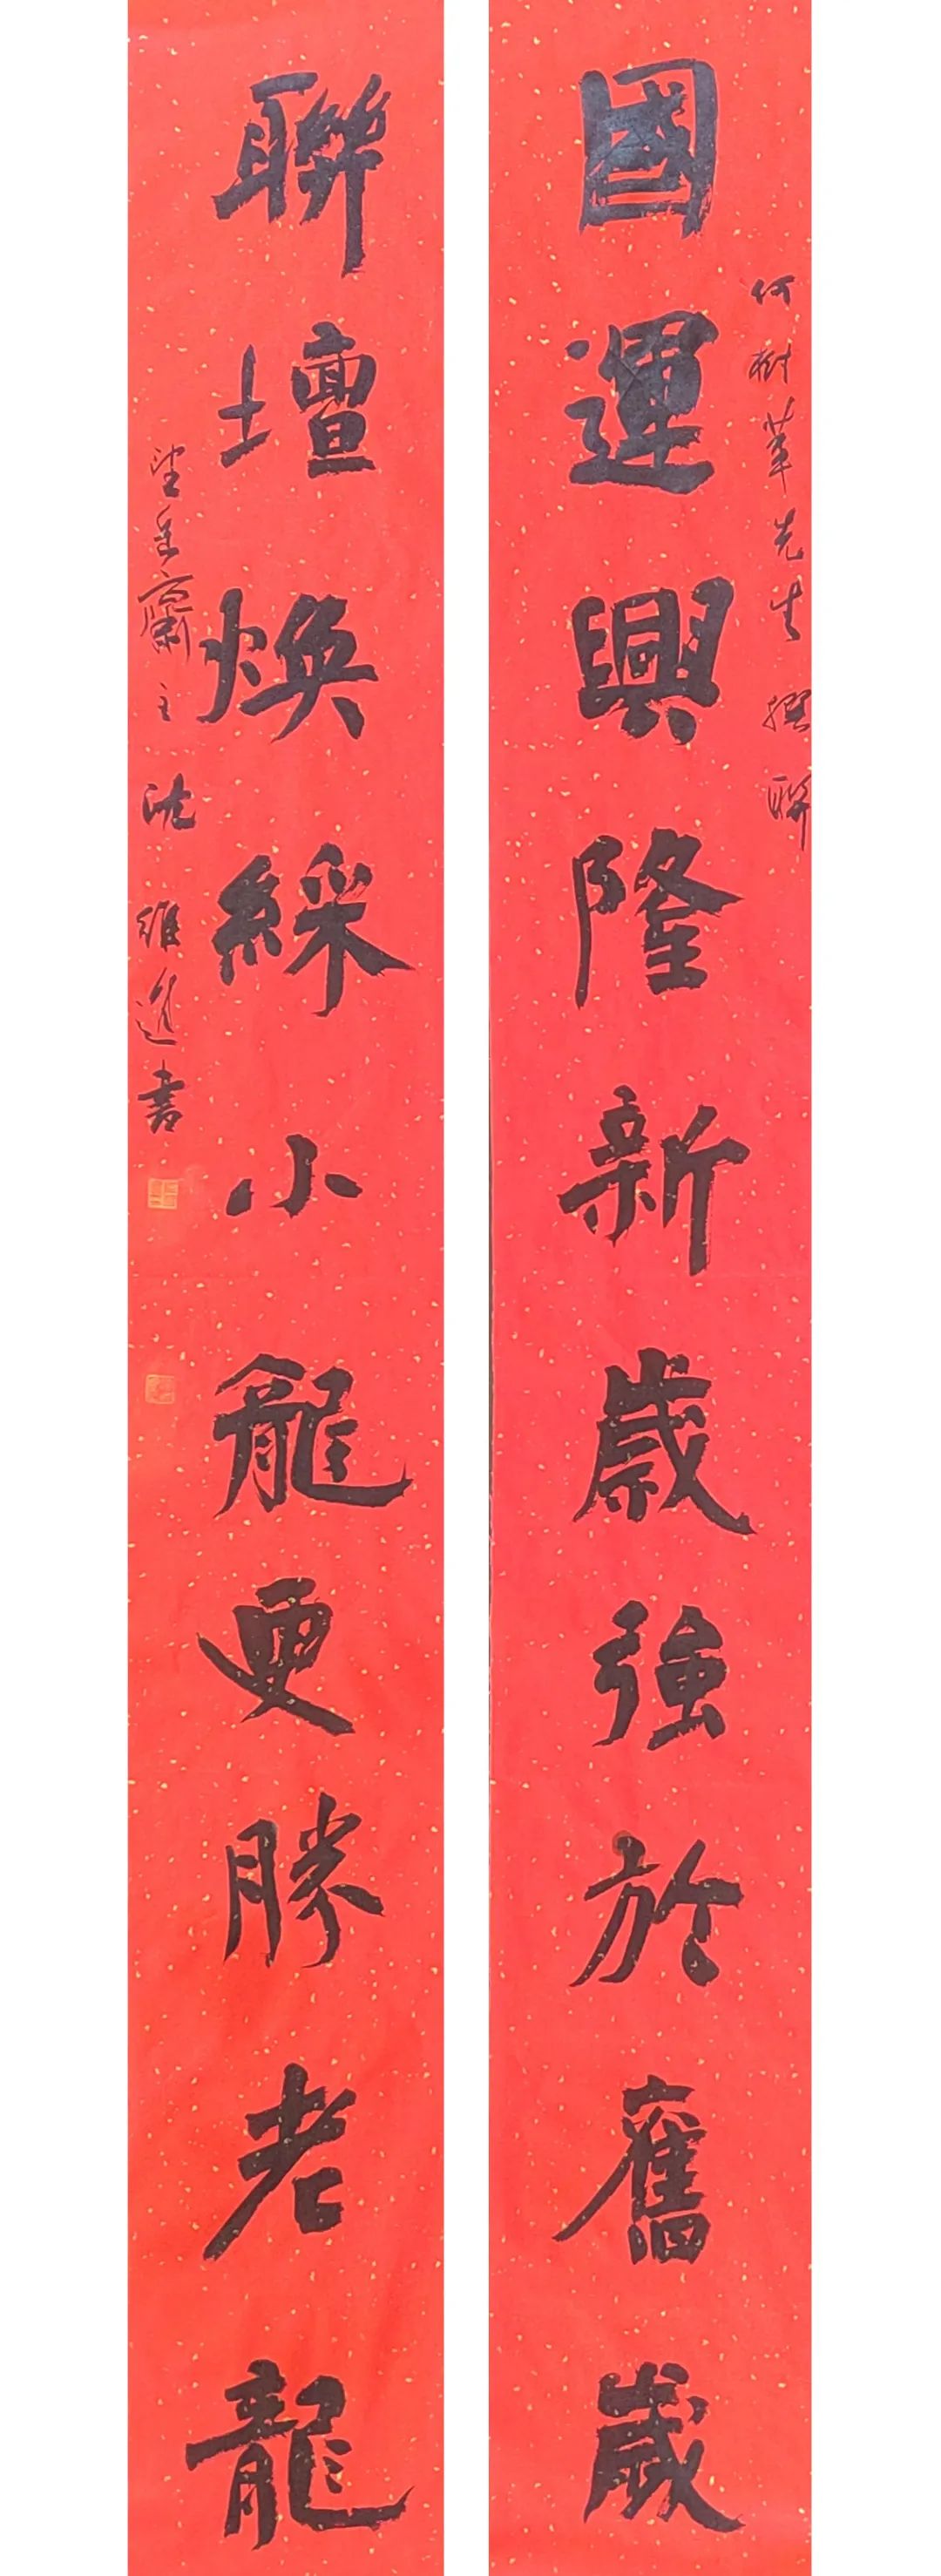 何樹華先生撰聯
國運興隆新歲強於舊歲
聯壇煥綵小龍更勝老龍
沈維進書